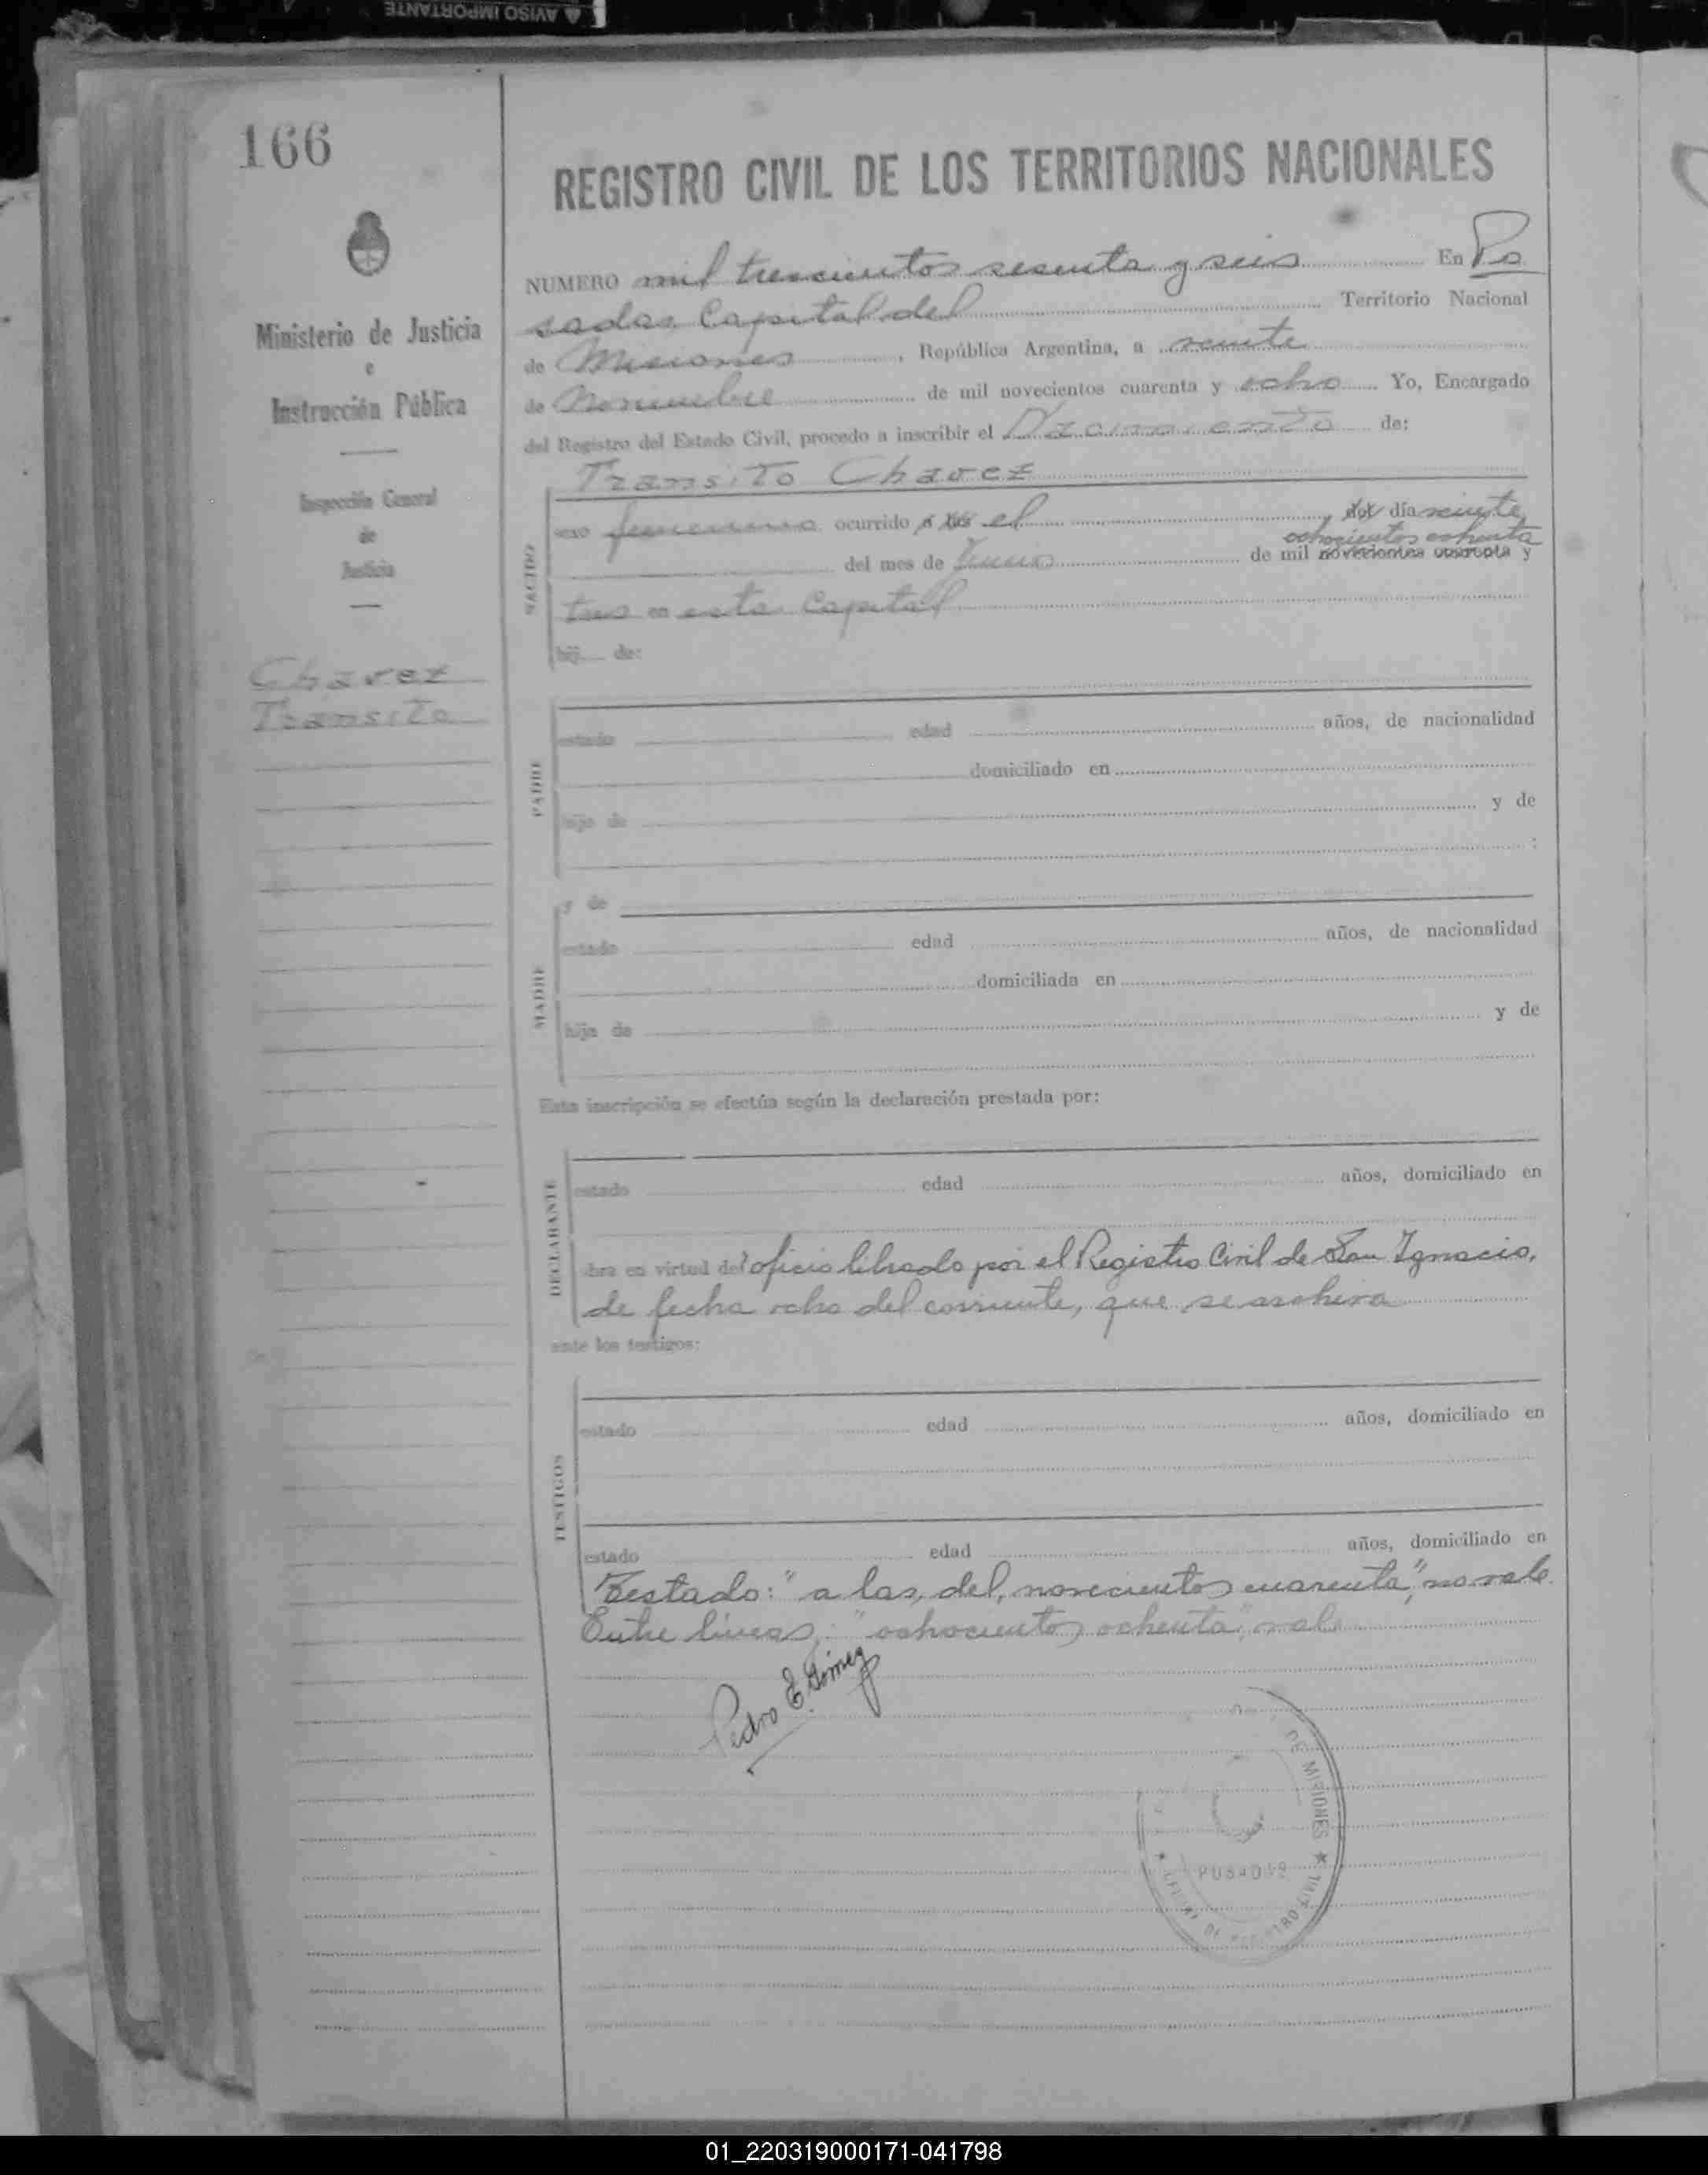 AVISO IMPORTANTE
166
REGISTRO CIVIL DE LOS TERRITORIOS NACIONALES
NUMERO mil trescientos sesenta y seis En Po
sadas Capital del Territorio Nacional
de Misiones, República Argentina, a veinte
de Noviembre de mil novecientos cuarenta y ocho Yo, Encargado
del Registro del Estado Civil, procedo a inscribir el Nacimiento de:
Transito Chavez
Ministerio de Justicia
e
Instrucción Pública
Inspección General
de
Justicia
Chavez
Transito
NACIDO
sexo femenino ocurrido a las el del día veinte
ochocientos ochenta
del mes de de mil novecientos cuarenta y
tres en esta Capital
hij de:
PADRE
estado edad años, de nacionalidad
domiciliado en
hijo de y de
:
MADRE
y de
estado edad años, de nacionalidad
domiciliada en
hija de y de
Esta inscripción se efectúa según la declaración prestada por:
DECLARANTE
estado edad años, domiciliado en
obra en virtud del oficio librado por el Registro Civil de San Ignacio,
de fecha ocho del corriente, que se archiva
ante los testigos:
TESTIGOS
estado edad años, domiciliado en
estado edad años, domiciliado en
Testado: "a las, del, novecientos cuarenta", no vale.
Entre líneas: "ochocientos ochenta", vale
Pedro E. Gómez
DE MISIONES
POSADAS
OFICINA DE REGISTRO CIVIL
01_220319000171-041798